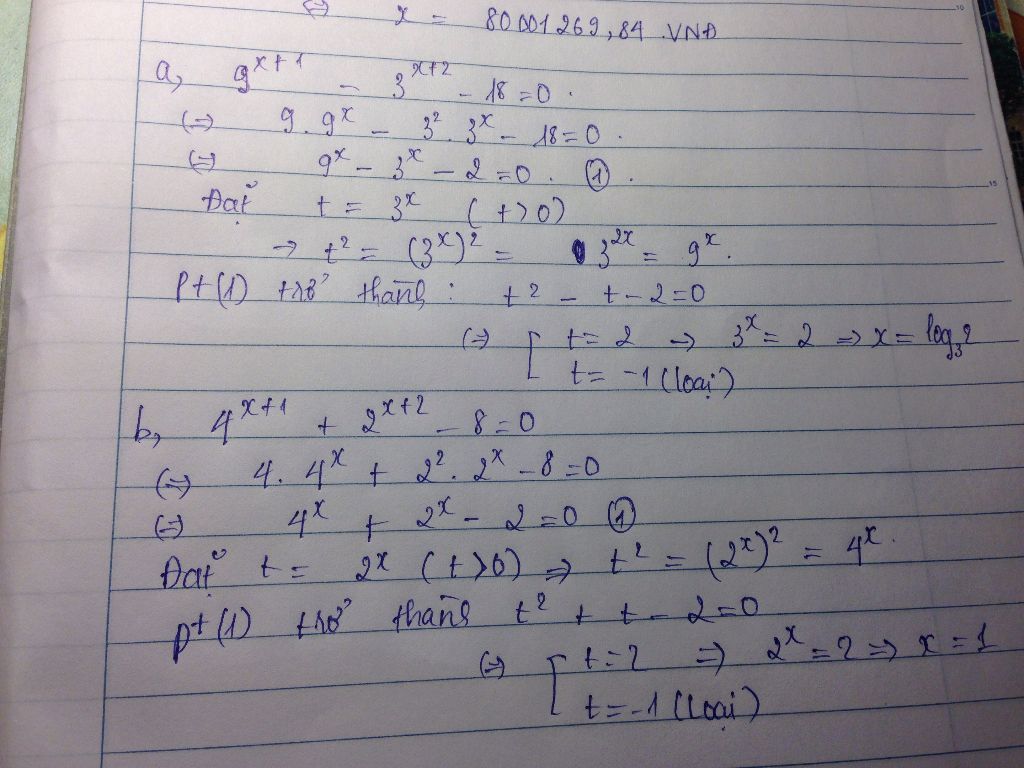 ⇔ x = 80001269,84 VNĐ
a, 9^{x+1} - 3^{x+2} - 18 = 0.
⇔ 9. 9^x - 3^2. 3^x - 18 = 0.
⇔ 9^x - 3^x - 2 = 0. ①.
Đặt t = 3^x (t>0)
→ t^2 = (3^x)^2 = 3^{2x} = 9^x.
Pt(1) trở thành: t^2 - t - 2 = 0
⇔ [ t = 2 → 3^x = 2 ⇒ x = log_3 2
t = -1 (loại)
b, 4^{x+1} + 2^{x+2} - 8 = 0
⇔ 4. 4^x + 2^2. 2^x - 8 = 0
⇔ 4^x + 2^x - 2 = 0 ①
Đặt t = 2^x (t>0) ⇒ t^2 = (2^x)^2 = 4^x.
pt(1) trở thành t^2 + t - 2 = 0
⇔ [ t = 2 ⇒ 2^x = 2 ⇒ x = 1
t = -1 (loại)